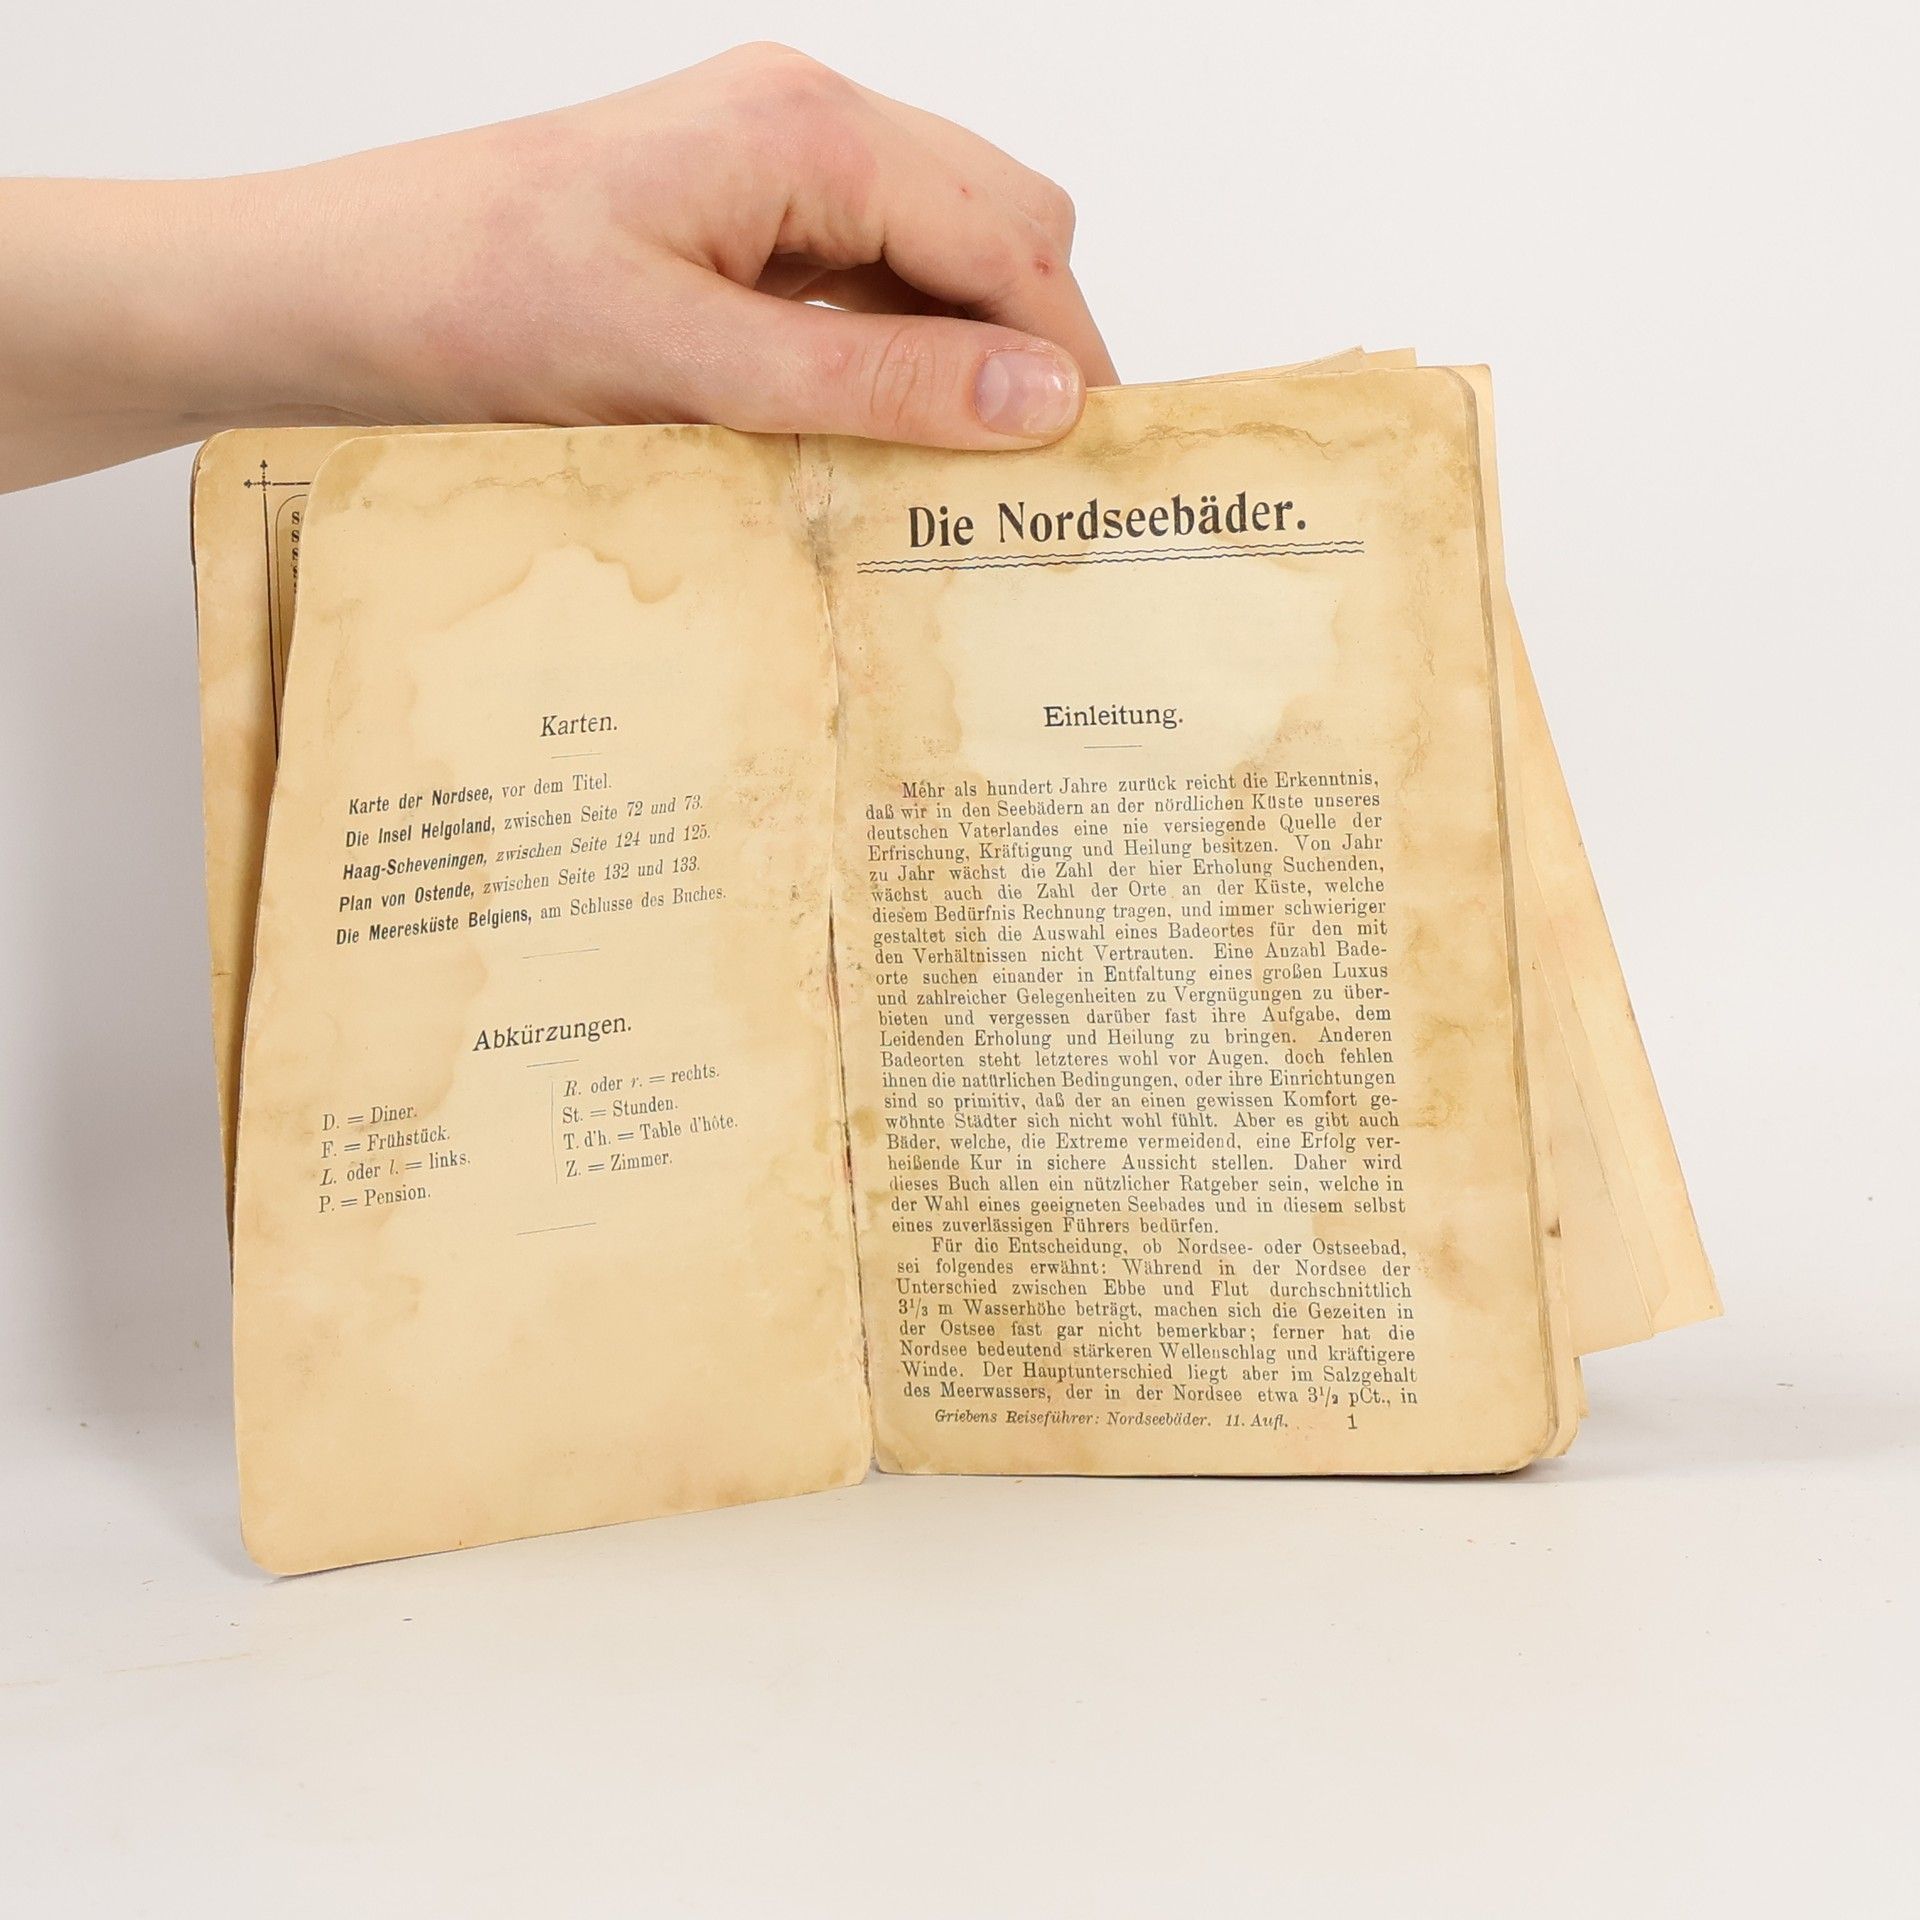 Karten.
Karte der Nordsee, vor dem Titel.
Die Insel Helgoland, zwischen Seite 72 und 73.
Haag-Scheveningen, zwischen Seite 124 und 125.
Plan von Ostende, zwischen Seite 132 und 133.
Die Meeresküste Belgiens, am Schlusse des Buches.
Abkürzungen.
D. = Diner.
F. = Frühstück.
L. oder l. = links.
P. = Pension.
R. oder r. = rechts.
St. = Stunden.
T. d'h. = Table d'hôte.
Z. = Zimmer.
Die Nordseebäder.
Einleitung.
Mehr als hundert Jahre zurück reicht die Erkenntnis,
daß wir in den Seebädern an der nördlichen Küste unseres
deutschen Vaterlandes eine nie versiegende Quelle der
Erfrischung, Kräftigung und Heilung besitzen. Von Jahr
zu Jahr wächst die Zahl der hier Erholung Suchenden,
wächst auch die Zahl der Orte an der Küste, welche
diesem Bedürfnis Rechnung tragen, und immer schwieriger
gestaltet sich die Auswahl eines Badeortes für den mit
den Verhältnissen nicht Vertrauten. Eine Anzahl Bade-
orte suchen einander in Entfaltung eines großen Luxus
und zahlreicher Gelegenheiten zu Vergnügungen zu über-
bieten und vergessen darüber fast ihre Aufgabe, dem
Leidenden Erholung und Heilung zu bringen. Anderen
Badeorten steht letzteres wohl vor Augen, doch fehlen
ihnen die natürlichen Bedingungen, oder ihre Einrichtungen
sind so primitiv, daß der an einen gewissen Komfort ge-
wöhnte Städter sich nicht wohl fühlt. Aber es gibt auch
Bäder, welche, die Extreme vermeidend, eine Erfolg ver-
heißende Kur in sichere Aussicht stellen. Daher wird
dieses Buch allen ein nützlicher Ratgeber sein, welche in
der Wahl eines geeigneten Seebades und in diesem selbst
eines zuverlässigen Führers bedürfen.
Für die Entscheidung, ob Nordsee- oder Ostseebad,
sei folgendes erwähnt: Während in der Nordsee der
Unterschied zwischen Ebbe und Flut durchschnittlich
3 1/3 m Wasserhöhe beträgt, machen sich die Gezeiten in
der Ostsee fast gar nicht bemerkbar; ferner hat die
Nordsee bedeutend stärkeren Wellenschlag und kräftigere
Winde. Der Hauptunterschied liegt aber im Salzgehalt
des Meerwassers, der in der Nordsee etwa 3 1/2 pCt., in
Griebens Reiseführer: Nordseebäder. 11. Aufl. 1